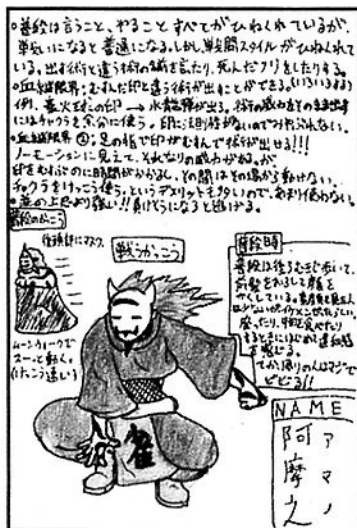 ・普段は言うこと、やることすべてがひねくれているが、
戦いになると普通になる。しかし戦闘スタイルがひねくれて
いる。出す術と違う術の名を言ったり、死んだフリをしたりする。
・血継限界:むすんだ印と違う術が出すことができる。(いろいろある)
例、豪火球の印→水龍弾が出る。術の威力をそのまま出す
にはチャクラを余分に使う。印に法則性がないのでみやぶれない。
・血継限界②:足の指で印がむすんで術が出せる!!!
ノーモーションに見えて、それなりの威力がある。が、
印をむすぶのに時間がかかるし、その間はその場から動けない。
チャクラをけっこう使う。というデメリットも多いので、あまり使わない。
・並の上忍より強い!!負けそうになると逃げる。
普段のかっこう
後頭部にマスク。
戦うかっこう
ムーンウォークで
スーッと動く。
けっこう速い
普段時
普段は後ろむきで歩いて、
前髪をおろして顔を
かくしている。
するときにはじめて違和感
を感じる。
てか周りの人はマジで
ビビる!!
雀
NAME
阿摩之
アマノ